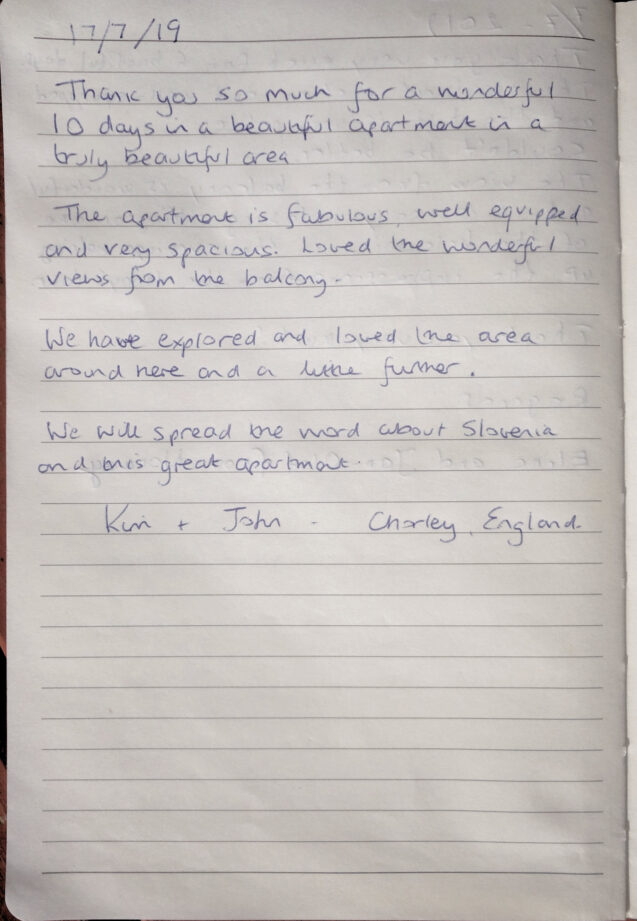 17/7/19
Thank you so much for a wonderful
10 days in a beautiful apartment in a
truly beautiful area
The apartment is fabulous, well equipped
and very spacious. Loved the wonderful
views from the balcony.
We have explored and loved the area
around here and a little further.
We will spread the word about Slovenia
and this great apartment.
Kim + John - Chorley, England.